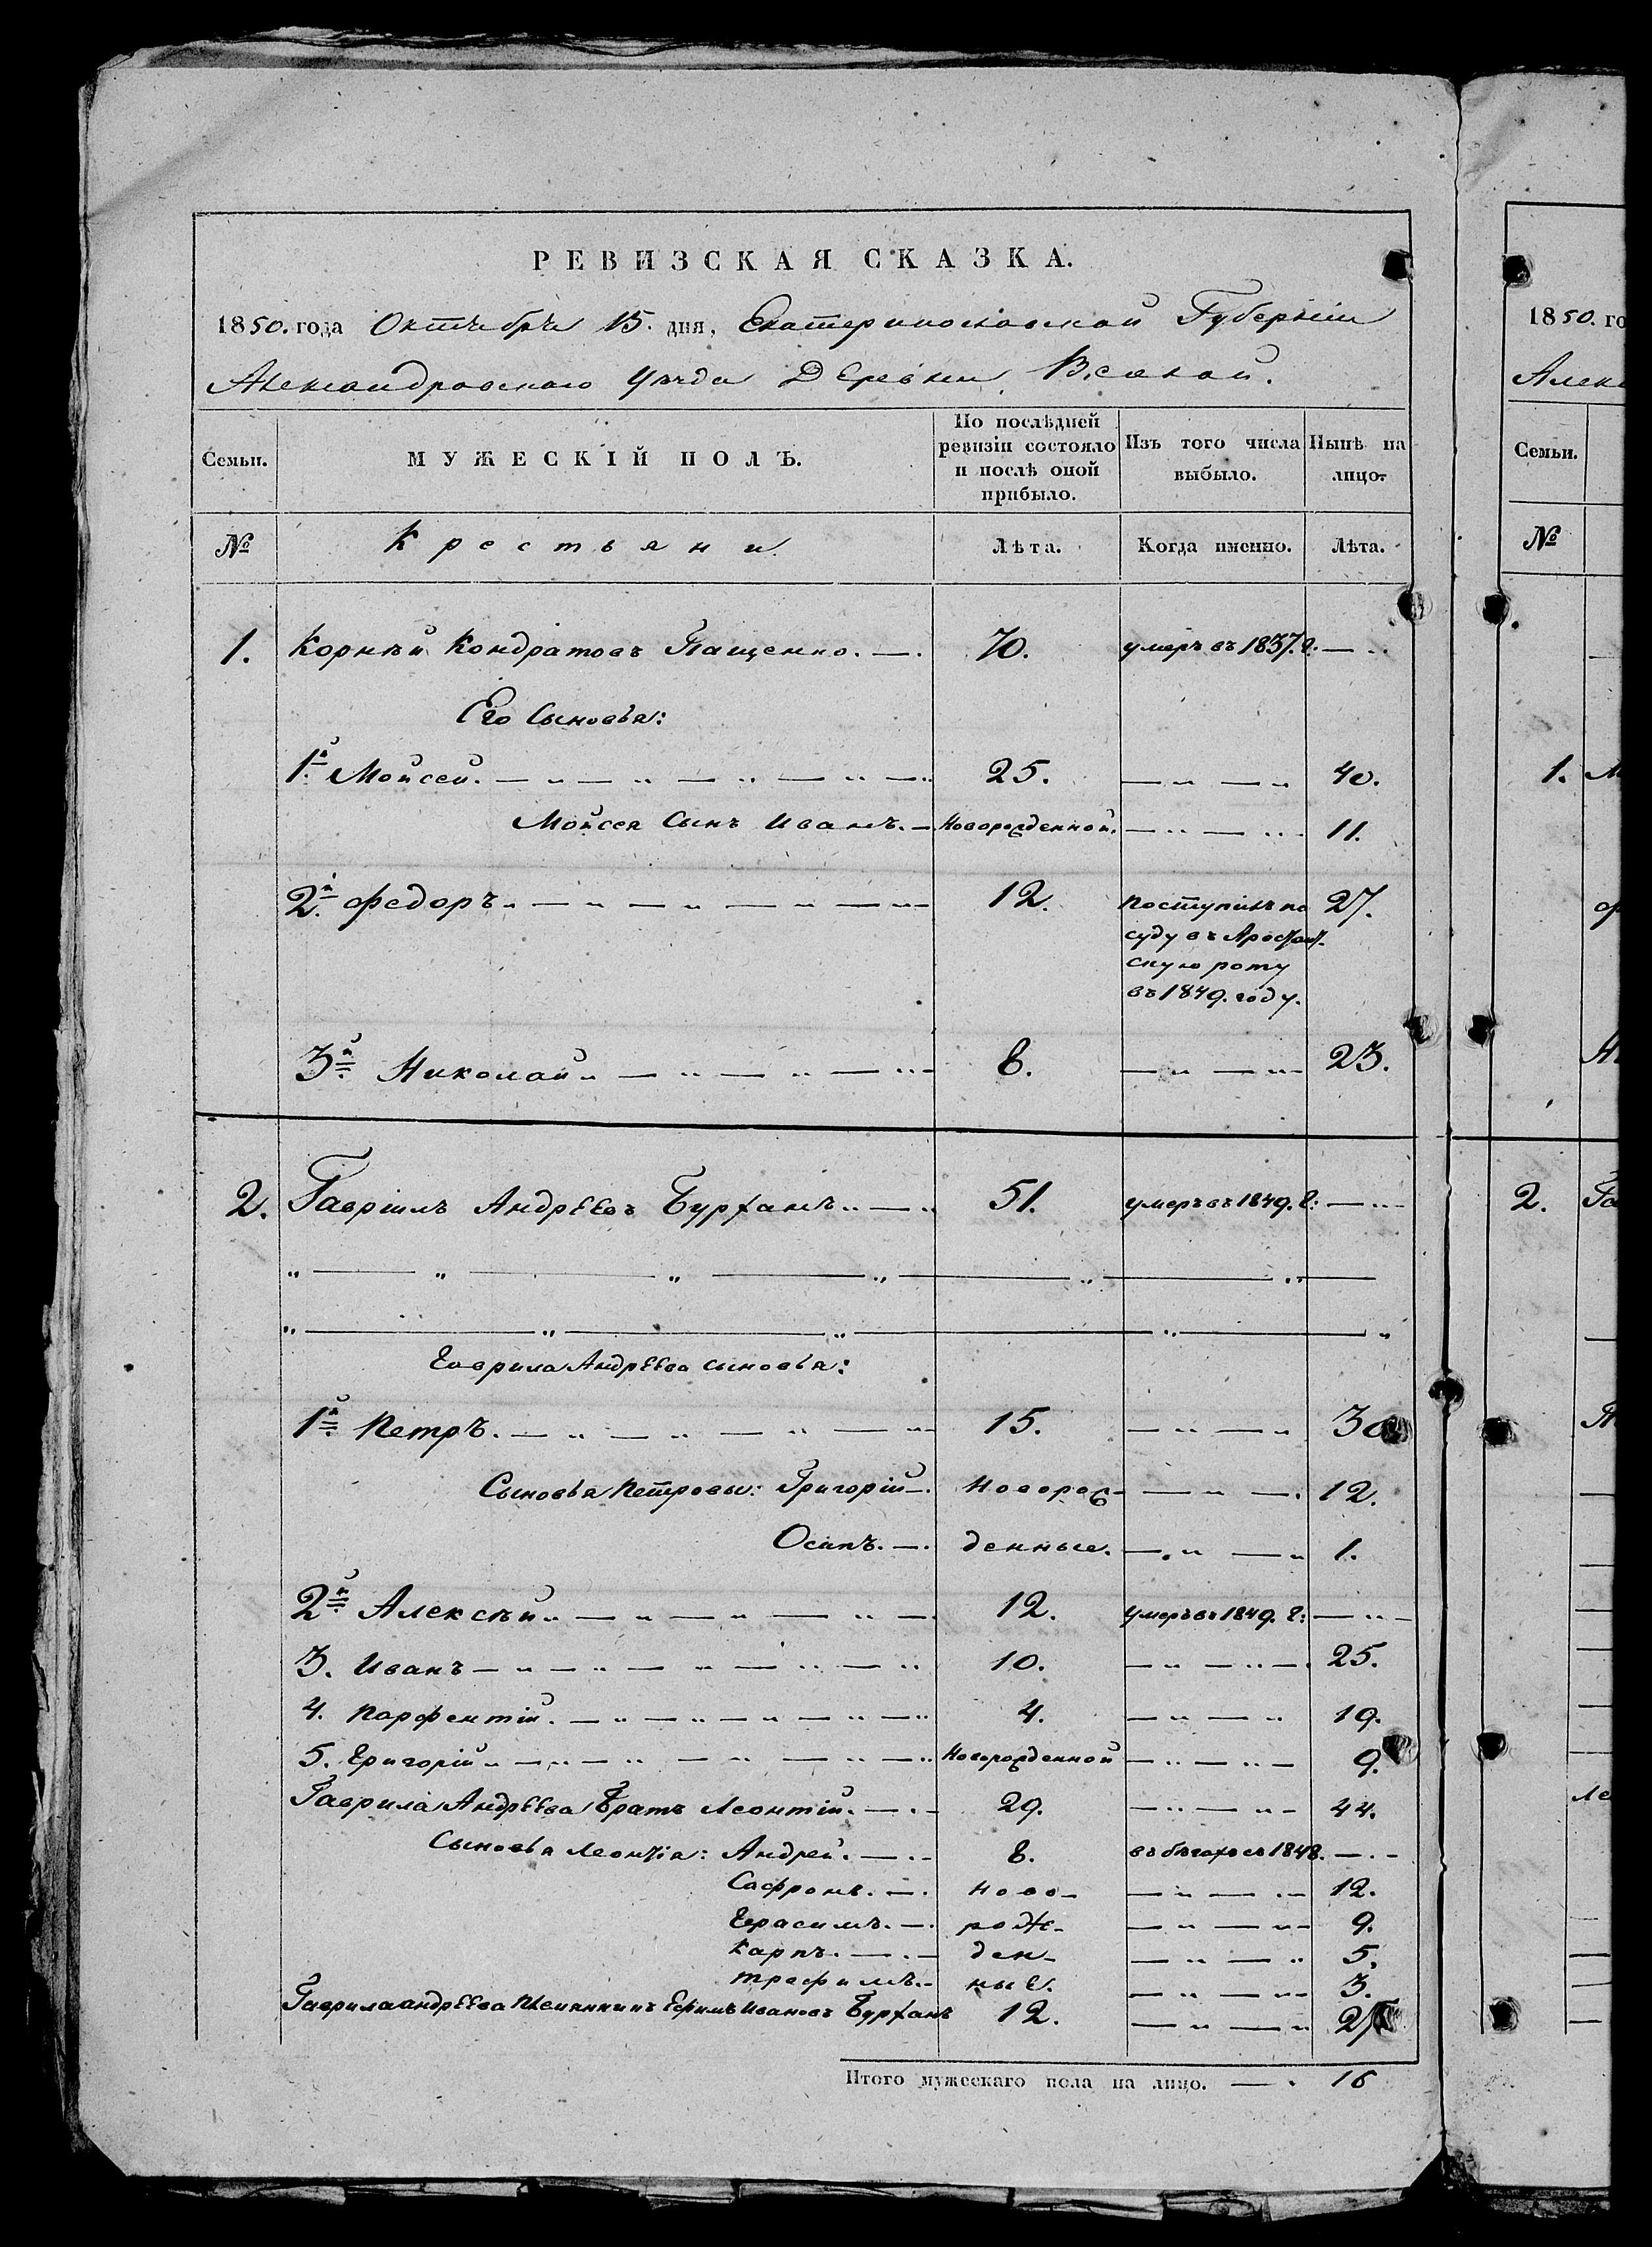 РЕВИЗСКАЯ СКАЗКА.
1850. года Октября 15. дня, Екатеринославской Губерніи
Александровскаго Уезда Деревни
Семьи. МУЖЕСКІЙ ПОЛЪ. По послѣдней ревизіи состояло и послѣ оной прибыло. Изъ того числа выбыло. Нынѣ на лицо.
№ Крестьяни Лѣта. Когда именно. Лѣта.
1. Корнѣй Кондратовъ Пащенко. 70. умеръ въ 1837. г:
Его Сыновья:
1й Мойсей. 25. 40.
Мойсея Сынъ Иванъ. Новорожденной. 11.
2й Федоръ. 12. Поступилъ по 27.
суду въ Арестан-
скую роту
въ 1849. году.
3й Николай 8. 23.
2. Гавріилъ Андреевъ Бурханъ 51. умеръ въ 1849. г:
Гаврила Андреева сыновья:
1й Петръ. 15. 30
Сыновья Петровы: Григорій Новорож- 12.
Осипъ. денные. 1.
2й Алексѣй 12. умеръ въ 1849. г:
3. Иванъ 10. 25.
4. Парфентій. 4. 19.
5. Григорій Новорожденной 9.
Гаврила Андреева Братъ Леонтій. 29. 44.
Сыновья Леонтія: Андрей. 8. въ бѣгахъ съ 1848.
Сафронъ. ново- 12.
Герасимъ. рож- 9.
Карпъ. ден- 5.
Трофимъ. ные. 3.
Гаврила андреева Племянникъ Ефимъ Ивановъ Бурханъ 12. 27
Итого мужескаго пола на лицо. 16
1850. го
Алекс
Семьи.
№
1. М
ф
Ни
2. Га
Ле